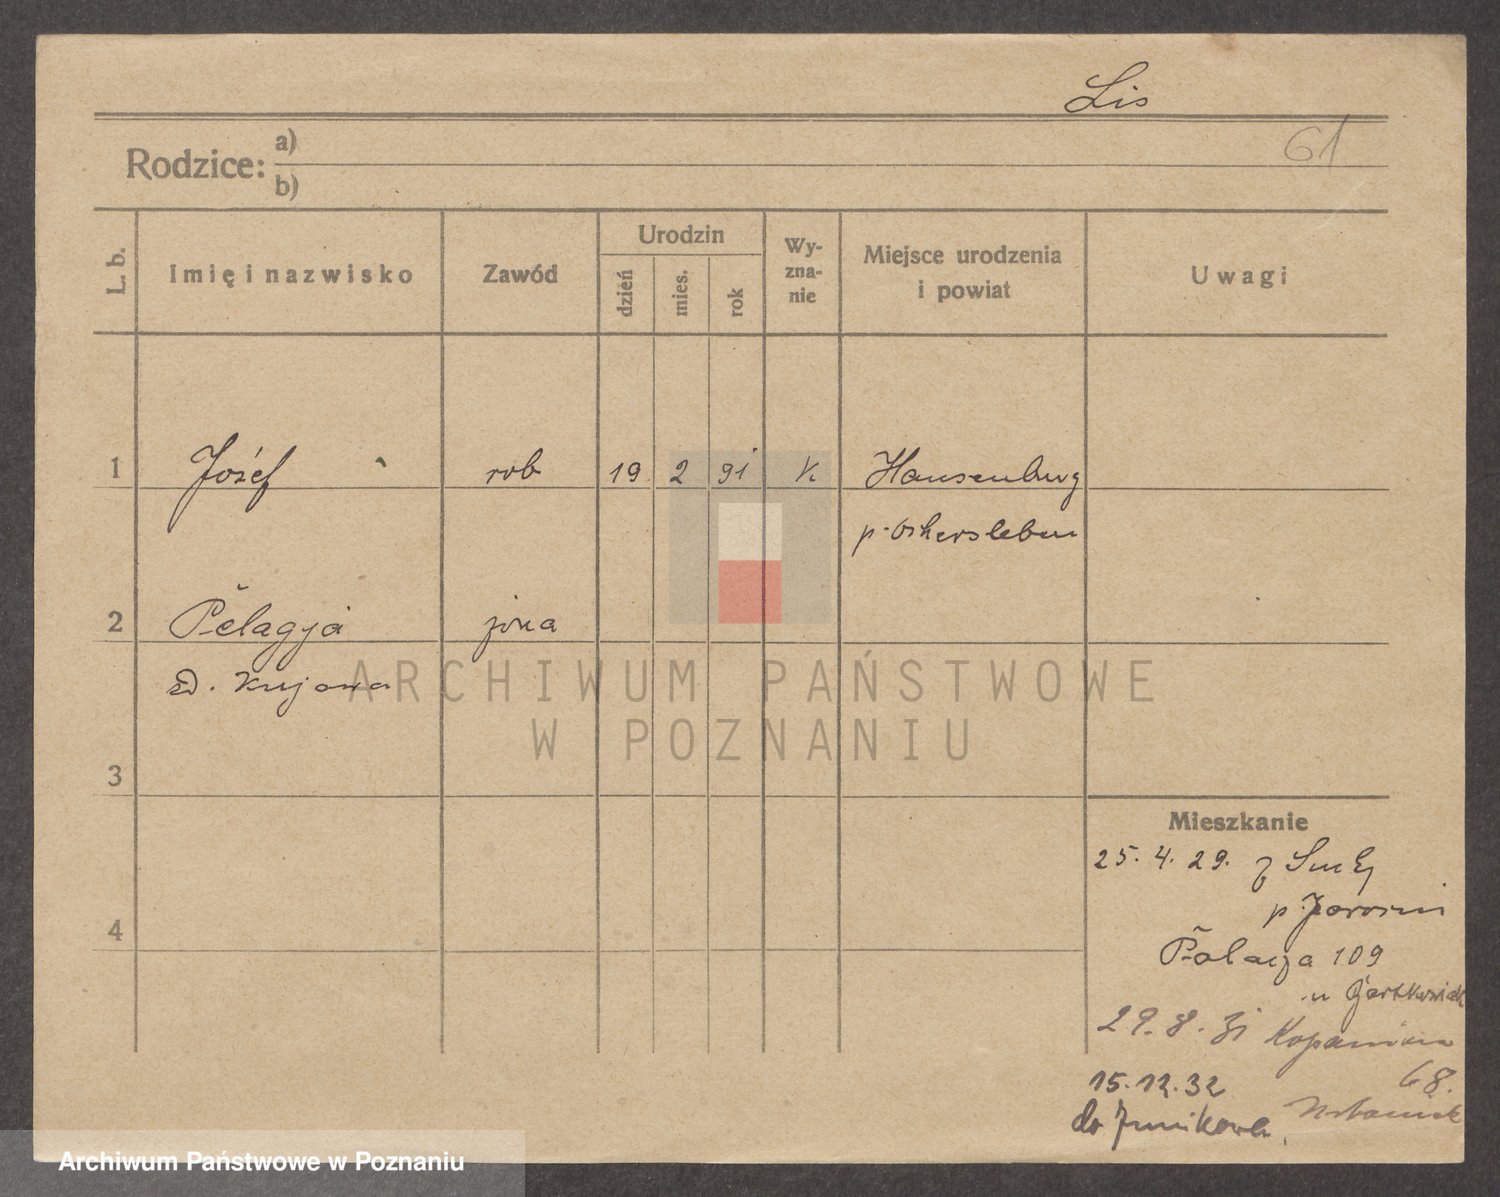 Lis
61
Rodzice: a)
b)
L. b.
Imię i nazwisko
Zawód
Urodzin
dzień
mies.
rok
Wy-
zna-
nie
Miejsce urodzenia
i powiat
Uwagi
1 Józef rob 19 2 91 k Hausenburg
p. Oshersleben
2 Pelagja żona
zd. Kujawa
3
4
Mieszkanie
25. 4. 29. z
p. Jarocin
109
u
29. 8. 31 Kopanina
68.
15. 12. 32
do Junikowa
ARCHIWUM PAŃSTWOWE
W POZNANIU
Archiwum Państwowe w Poznaniu